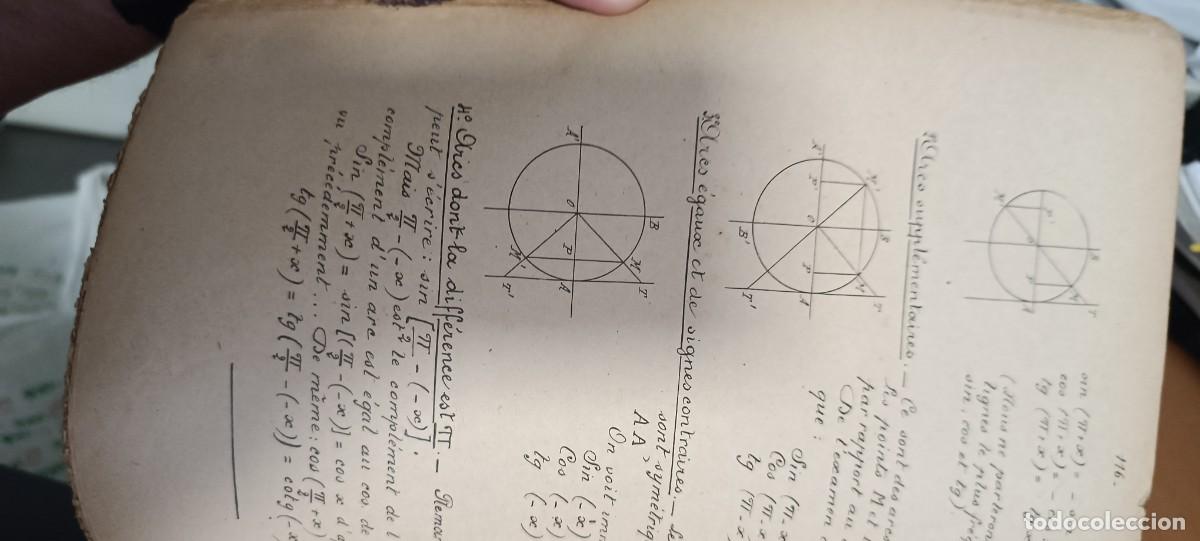 116.
sin (π+x) = -
cos (π+x) = -
tg (π+x) =
lignes le plus
sin, cos et tg)
2º Arcs supplémentaires. — Ce sont des arcs
Les points M et
par rapport au
De l'examen
que :
Sin (π-x
Cos (π-x
tg (π-x
3º Arcs égaux et de signes contraires. —
sont symétriq
AA'
On voit
Sin (-x)
Cos (-x)
tg (-x)
4º Arcs dont la différence est π/2. —
peut s'écrire : sin [π/2 - (-x)].
Mais π/2 - (-x) est le complément de
complément d'un arc est égal au cos. de
Sin (π/2 + x) = sin [(π/2 - (-x)] = cos x
vu précédemment... De même : cos (π/2 + x)
tg (π/2 + x) = tg (π/2 - (-x)) = cotg (-x
todocoleccion